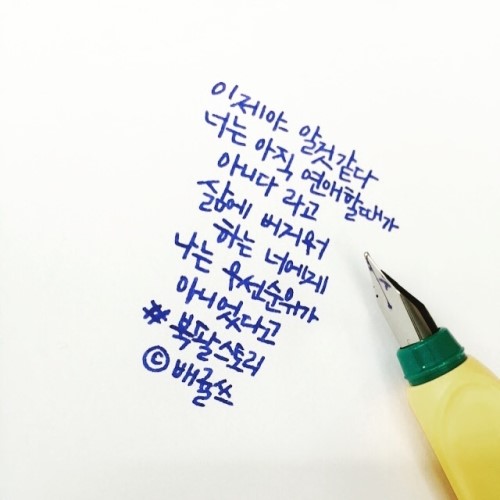 이제야 알것같다
너는 아직 연애할때가
아니다 라고
삶에 버거워
하는 너에게
나는 우선순위가
아니었다고
#북팔스토리
©배글쓰